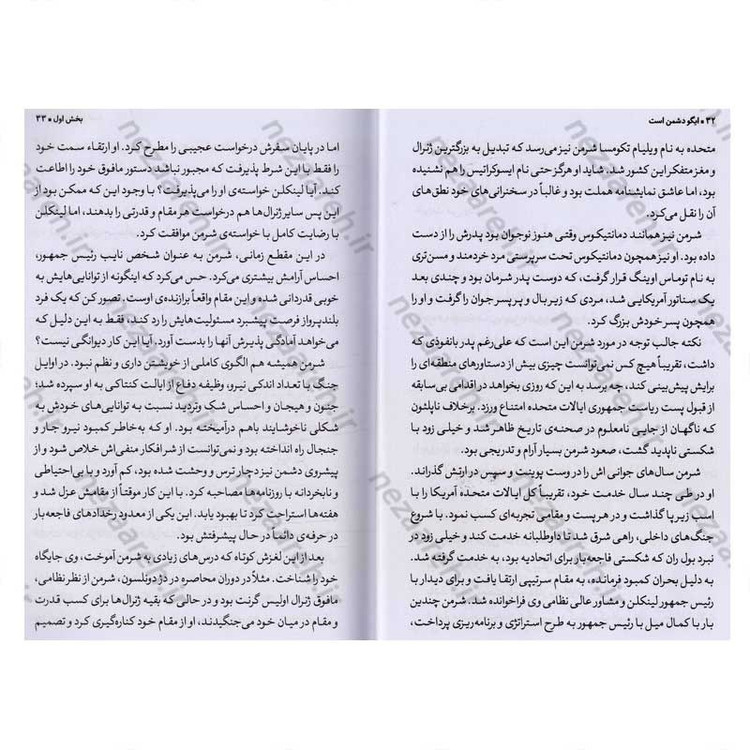 ۳۲ • ایگو دشمن است
متحده به نام ویلیام تکومسا شرمن نیز می‌رسد که تبدیل به بزرگترین ژنرال
و مغز متفکر این کشور شد. شاید او هرگز حتی نام ایسوکراتیس را هم نشنیده
بود، اما عاشق نمایشنامه هملت بود و غالباً در سخنرانی‌های خود نطق‌های
آن را نقل می‌کرد.
شرمن نیز همانند دمانتیکوس وقتی هنوز نوجوان بود پدرش را از دست
داده بود. او نیز همچون دمانتیکوس تحت سرپرستی مرد خردمند و مسن‌تری
به نام توماس اوینگ قرار گرفت، که دوست پدر شرمن بود و چندی بعد
یک سناتور آمریکایی شد، مردی که زیر بال و پر پسر جوان را گرفت و او را
همچون پسر خودش بزرگ کرد.
نکته جالب توجه در مورد شرمن این است که علی‌رغم پدر بانفوذی که
داشت، تقریباً هیچ کس نمی‌توانست چیزی بیش از دستاورهای منطقه‌ای را
برایش پیش‌بینی کند، چه برسد به این که روزی بخواهد در اقدامی بی‌سابقه
از قبول پست ریاست جمهوری ایالات متحده امتناع ورزد. برخلاف ناپلئون
که ناگهان از جایی نامعلوم در صحنه‌ی تاریخ ظاهر شد و خیلی زود با
شکستی ناپدید گشت، صعود شرمن بسیار آرام و تدریجی بود.
شرمن سال‌های جوانی اش را در وست پوینت و سپس در ارتش گذراند.
او در طی چند سال خدمت خود، تقریباً کل ایالات متحده آمریکا را با
اسب زیر پا گذاشت و در هر پست و مقامی تجربه‌ای کسب نمود. با شروع
جنگ‌های داخلی، راهی شرق شد تا داوطلبانه خدمت کند و خیلی زود در
نبرد بول ران که شکستی فاجعه‌بار برای اتحادیه بود، به خدمت گرفته شد.
به دلیل بحران کمبود فرمانده، به مقام سرتیپی ارتقا یافت و برای دیدار با
رئیس جمهور لینکلن و مشاور عالی نظامی وی فراخوانده شد. شرمن چندین
بار با کمال میل با رئیس جمهور به طرح استراتژی و برنامه‌ریزی پرداخت،
بخش اول • ۳۳
اما در پایان سفرش درخواست عجیبی را مطرح کرد. او ارتقاء سمت خود
را فقط با این شرط پذیرفت که مجبور نباشد دستور مافوق خود را اطاعت
کند. آیا لینکلن خواسته‌ی او را می‌پذیرفت؟ با وجود این که ممکن بود از
این پس سایر ژنرال‌ها هم درخواست هر مقام و قدرتی را بدهند، اما لینکلن
با رضایت کامل با خواسته‌ی شرمن موافقت کرد.
در این مقطع زمانی، شرمن به عنوان شخص نایب رئیس جمهور،
احساس آرامش بیشتری می‌کرد. حس می‌کرد که اینگونه از توانایی‌هایش به
خوبی قدردانی شده و این مقام واقعاً برازنده‌ی اوست. تصور کن که یک فرد
بلندپرواز فرصت پیشبرد مسئولیت‌هایش را رد کند، فقط به این دلیل که
می‌خواهد آمادگی پذیرش آنها را بدست آورد. آیا این کار دیوانگی نیست؟
شرمن همیشه هم الگوی کاملی از خویشتن داری و نظم نبود. در اوایل
جنگ با تعداد اندکی نیرو، وظیفه دفاع از ایالت کنتاکی به او سپرده شد؛
جنون و هیجان و احساس شک و تردید نسبت به توانایی‌های خودش به
شکلی ناخوشایند باهم درآمیخته بود. او که به‌خاطر کمبود نیرو جار و
جنجال راه انداخته بود و نمی‌توانست از شر افکار منفی‌اش خلاص شود و از
پیشروی دشمن نیز دچار ترس و وحشت شده بود، کم آورد و با بی‌احتیاطی
و نابخردانه با روزنامه‌ها مصاحبه کرد. با این کار موقتاً از مقامش عزل شد و
هفته‌ها استراحت کرد تا بهبود یابد. این یکی از معدود رخدادهای فاجعه‌بار
در حرفه‌ی دائما در حال پیشرفتش بود.
بعد از این لغزش کوتاه که درس‌های زیادی به شرمن آموخت، وی جایگاه
خود را شناخت. مثلاً در دوران محاصره در دژ دونلسون، شرمن از نظر نظامی،
مافوق ژنرال اولیس گرنت بود و در حالی که بقیه ژنرال‌ها برای کسب قدرت
و مقام در میان خود می‌جنگیدند، او از مقام خود کناره‌گیری کرد و تصمیم
nezaareh.ir